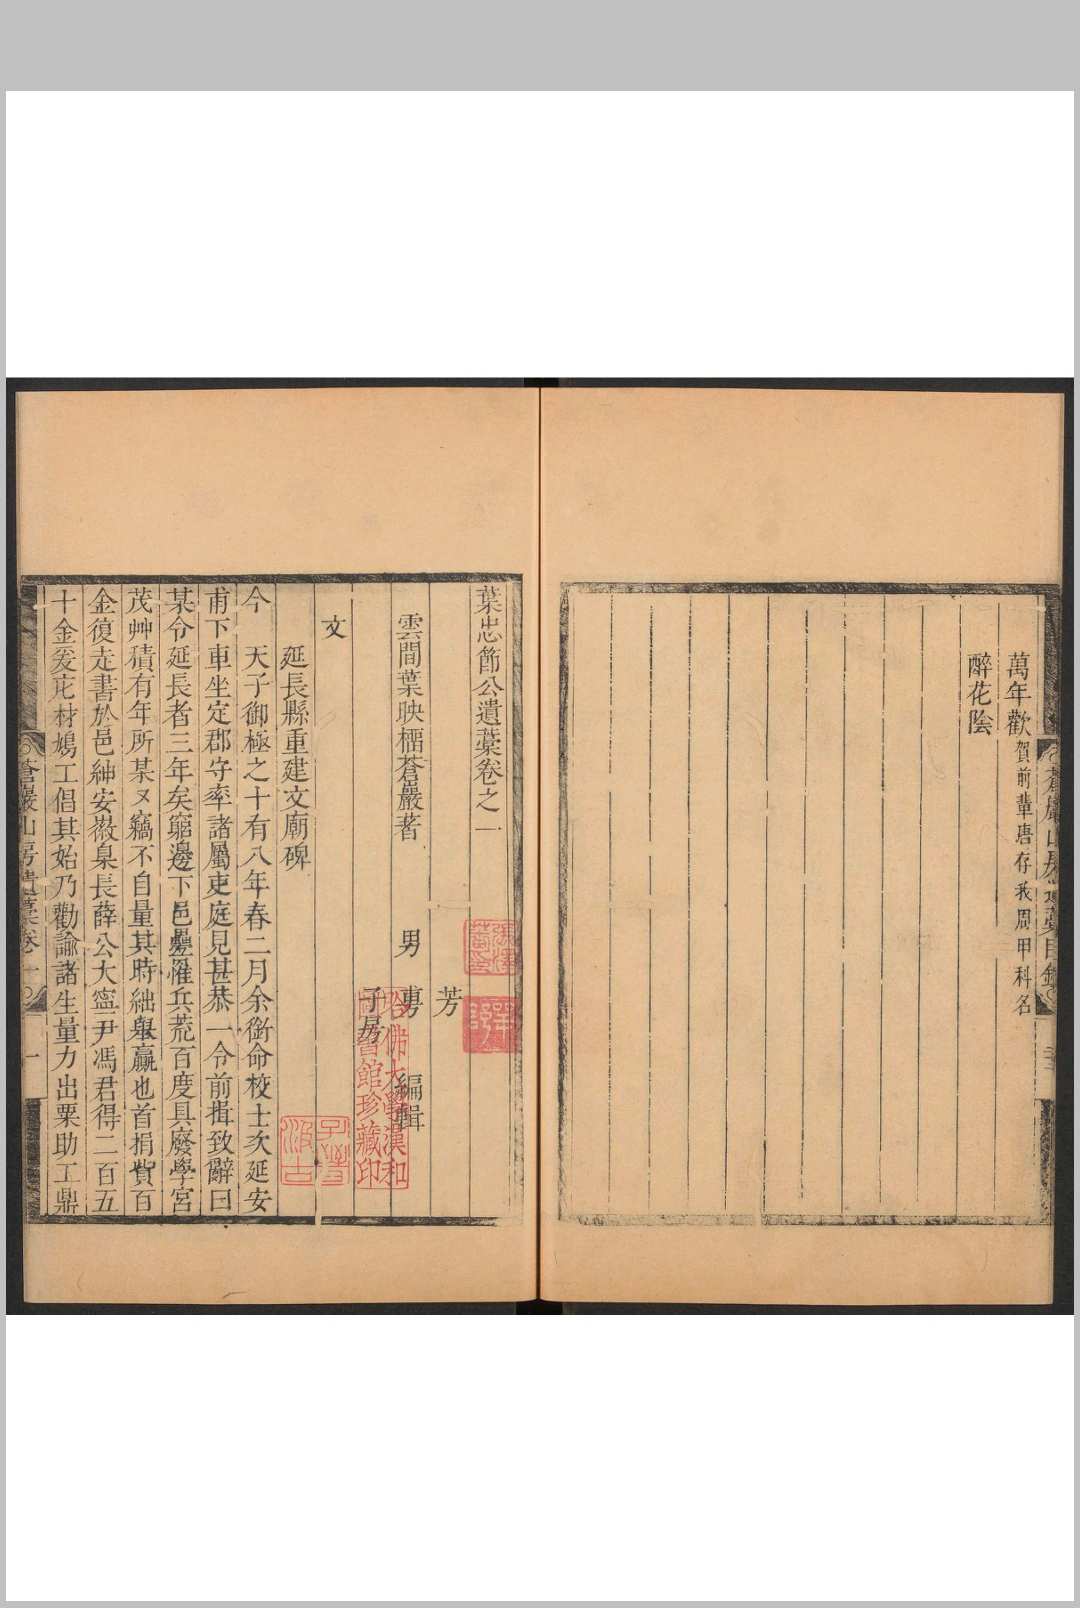 萬年歡 賀前輩唐存我周甲科名
醉花陰
葉忠節公遺藁卷之一
芳
雲間葉映榴蒼巖著 男 旉 編輯
子房
文
延長縣重建文廟碑
今 天子御極之十有八年春二月余銜命校士次延安
甫下車坐定郡守率諸屬吏庭見甚恭一令前揖致辭曰
某令延長者三年矣窮邊下邑疊罹兵荒百度具廢學宮
茂艸積有年所某又竊不自量其時絀舉贏也首捐貲百
金復走書於邑紳安徽臬長薛公大寍尹馮君得二百五
十金爰庀材鳩工倡其始乃勸諭諸生量力出粟助工鼎
蒼巖山房遺藁卷一
一
哈佛大學漢和
圖書館珍藏印